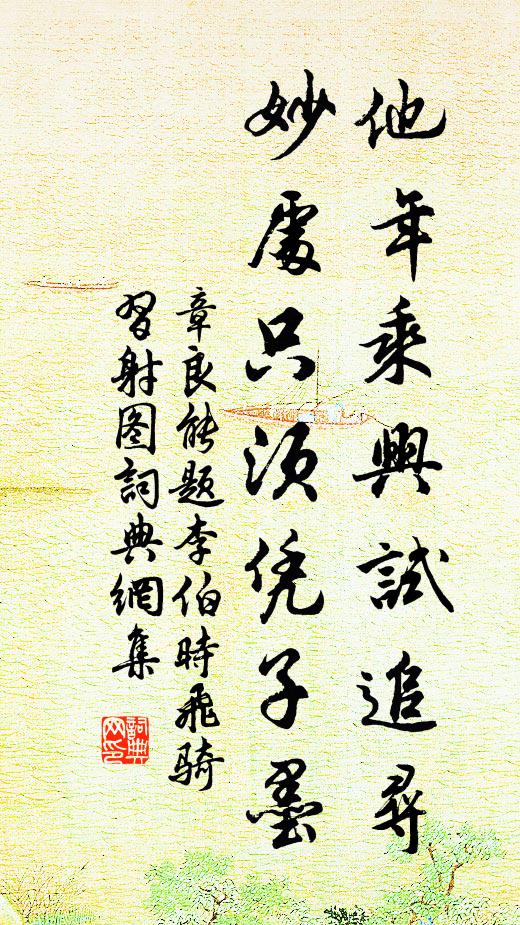 他年乘興試追尋
妙處只須凭子墨
章良能題李伯時飛騎
習射图詞典網集
詞典
网印